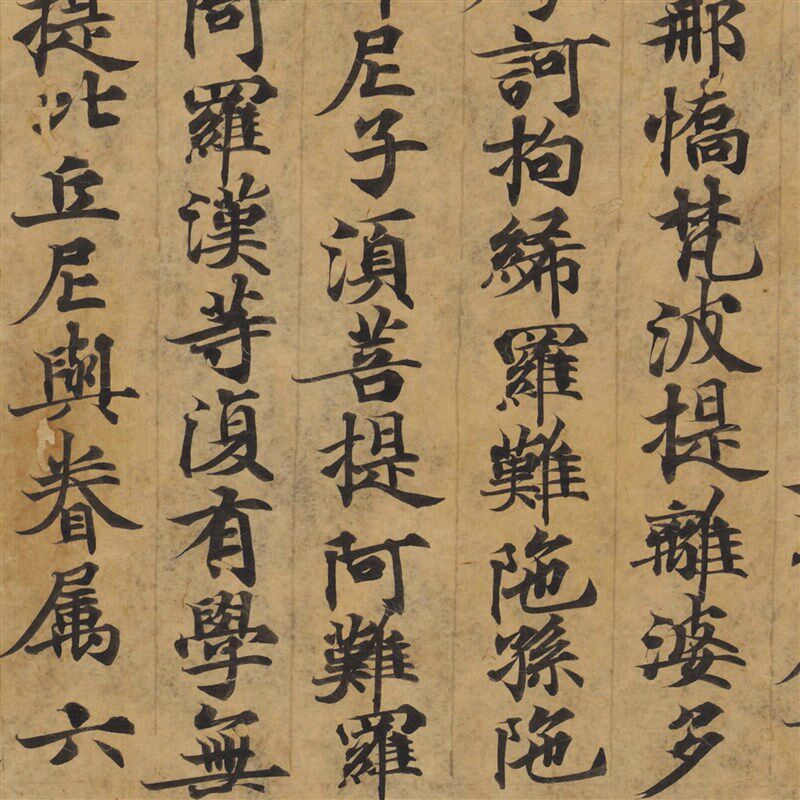 那憍梵波提離婆多
訶拘絺羅難陁孫陁
尼子須菩提阿難羅
羅漢等復有學無
提比丘尼與眷属六